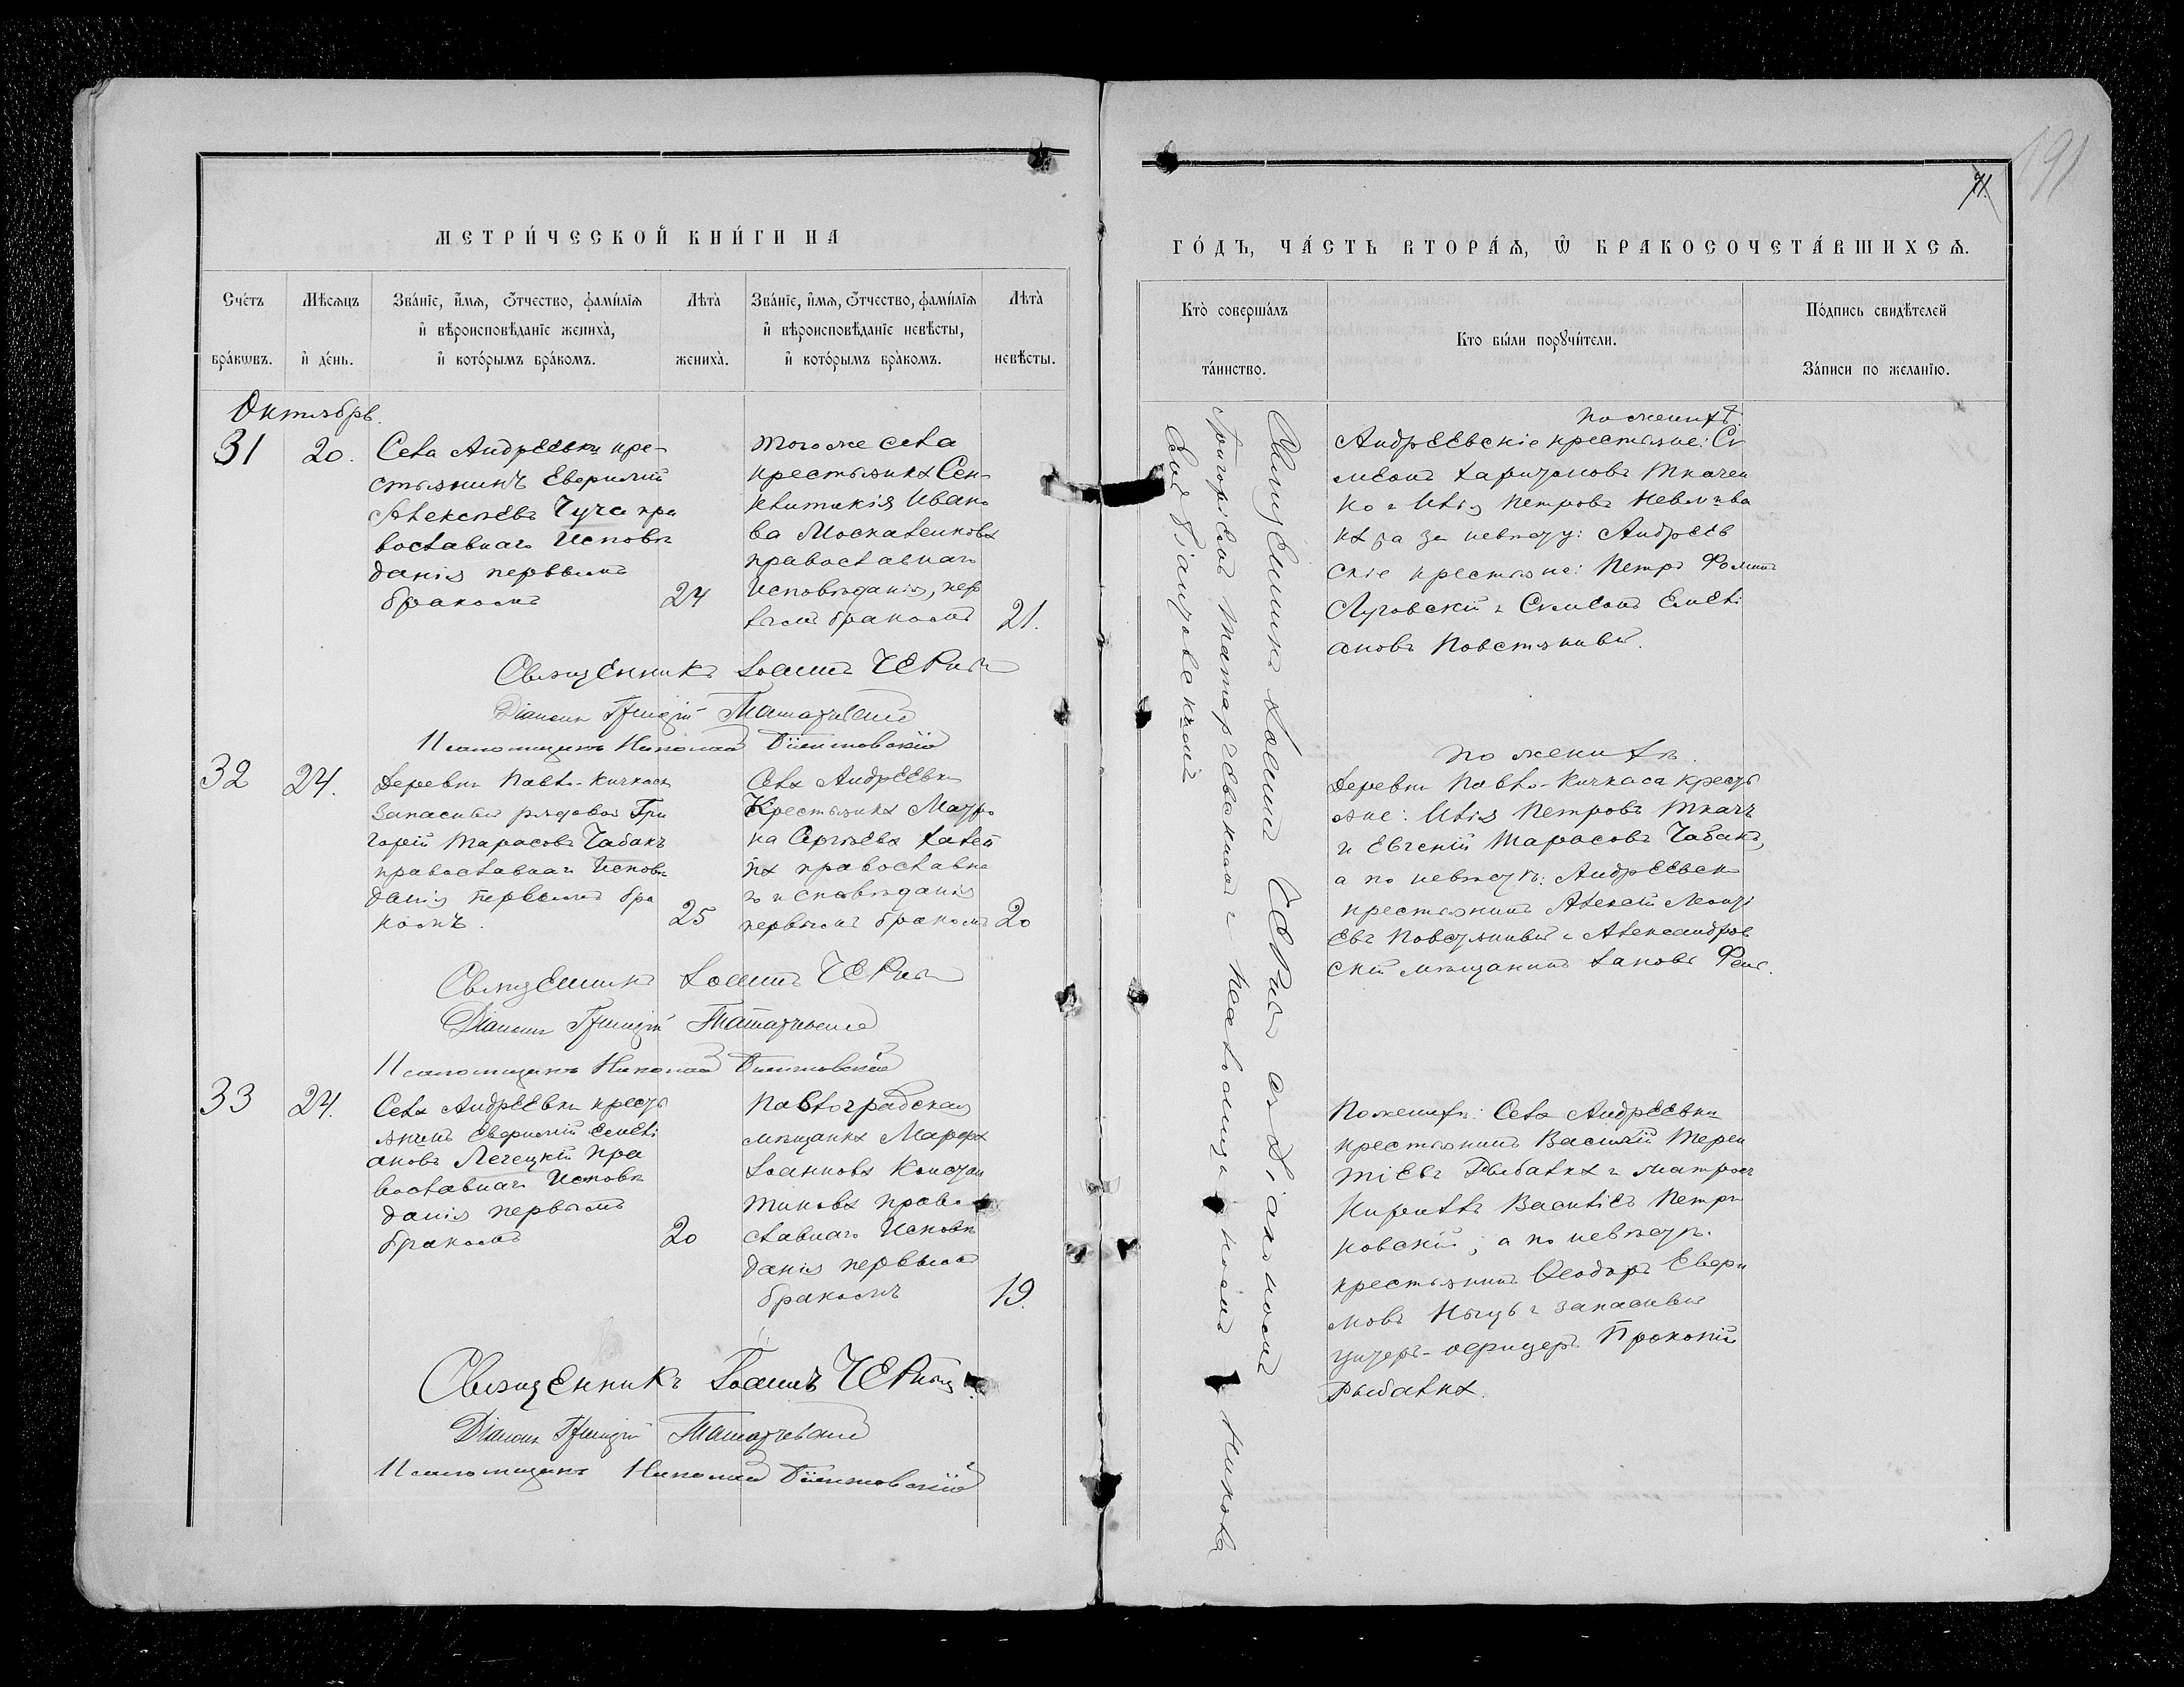 МЕТРИ́ЧЕСКОЙ КНИ́ГИ НА
Сче́тъ бра́кѡвъ.
Мѣ́сѧцъ и҆ де́нь.
Зва́нїе, и҆́мѧ, ѻ҆́тчество, фамі́лїѧ
и҆ вѣроисповѣ́данїе жениха̀,
и҆ кото́рымъ бра́комъ.
Лѣ́та̀ жениха̀.
Зва́нїе, и҆́мѧ, ѻ҆́тчество, фамі́лїѧ
и҆ вѣроисповѣ́данїе невѣ́сты,
и҆ кото́рымъ бра́комъ.
Лѣ́та̀ невѣ́сты.
Октябрь.
31
20.
Села Андреевки кре-
стьянинъ Евфимій
Алексѣевъ Чуча пра
вославнаго исповѣ
данія первымъ
бракомъ
24
тогоже села
крестьянка Сен-
клитикія Ивано
ва Москаленкова
православнаго
исповѣданія, пер
вымъ бракомъ
21.
Священникъ Іоаннъ
Діаконъ Григорій Татарчевскій
Псаломщикъ Николай
32
24.
Деревни Павло-Кичкаса
запасный рядовой Гри
горій Тарасовъ Чабанъ
православнаго исповѣ
данія первымъ бра
комъ.
25
Села Андреевки
Крестьянка Матро
на Сергѣева
православна
го исповѣданія
первымъ бракомъ
20
Священникъ Іоаннъ
Діаконъ Григорій Татарчевскій
Псаломщикъ Николай
33
24.
Села Андреевки кресть
янинъ Евфимій Емелі
ановъ Легецкій пра
вославнаго исповѣ
данія первымъ
бракомъ
20
Павлоградская
мѣщанка Марфа
Іоаннова Констан
тинова право
славнаго исповѣ
данія первымъ
бракомъ
19.
Священникъ Іоаннъ
Діаконъ Григорій Татарчевскій
Псаломщикъ Николай
191
71.
ГО́ДЪ, ЧА́СТЬ ВТОРА́Ѧ, Ѡ҆ БРАКОСОЧЕТА́ВШИХСѦ.
Кто̀ соверша́лъ
та́инство.
Кто бы́ли порꙋчи́тели.
По́дпись свидѣ́телей
За́писи по жела́нїю.
Священникъ Іоаннъ съ діакономъ
Григоріемъ Татарчевскимъ и псаломщикомъ Никола
емъ
по женихѣ
Андреевскіе крестьяне: Си
меонъ Харитоновъ Ткачен
ко и Илія Петровъ
за невѣсту: Андреев
скіе крестьяне: Петръ Фоминъ
Луговскій и Симеонъ Емелі
ановъ Повстяный.
по женихѣ.
Деревни Павло-Кичкаса кресть
яне: Илія Петровъ Ткачъ
и Евгеній Тарасовъ Чабанъ,
а по невѣстѣ: Андреевск
крестьянинъ Алексій Леонті
евъ Повстяный и Александров
скій мѣщанинъ Іаковъ
По женихѣ: Села Андреевки
крестьянинъ Василій Терен
тіевъ Рыбалка и матросъ
Кириллъ Василіевъ Петри
ковскій, а по невѣстѣ.
крестьянинъ Ѳеодоръ Евфи
мовъ и запасный
унтеръ-офицеръ Прокопій
Рыбалка.